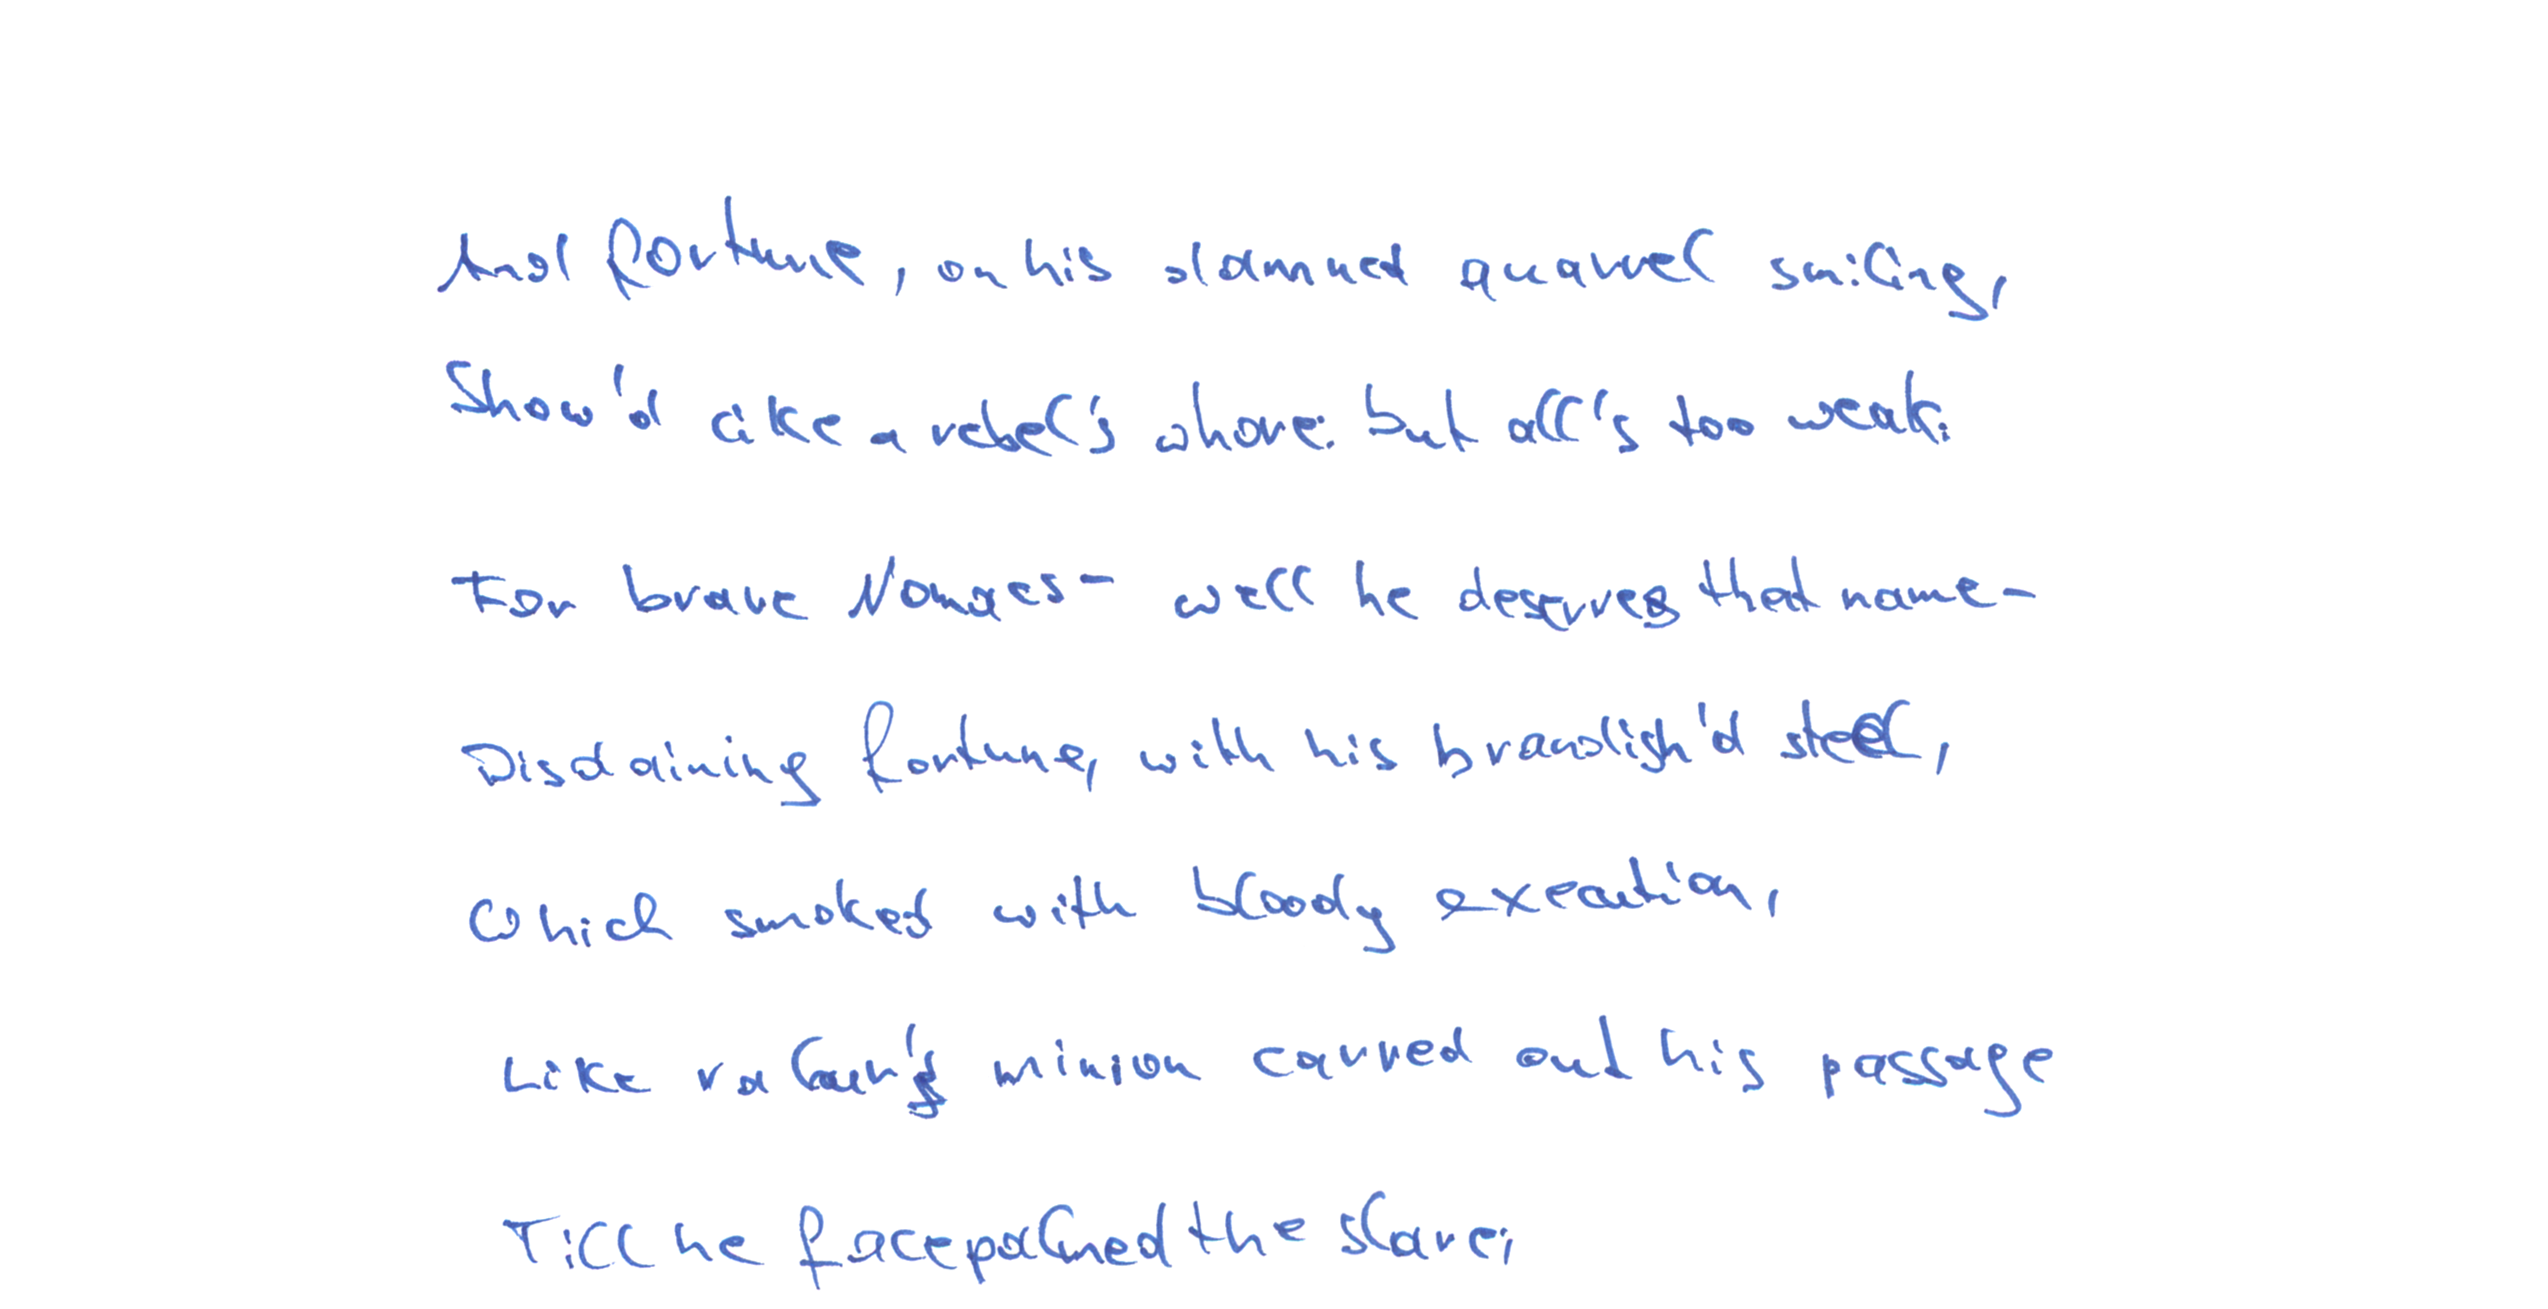 And fortune, on his damned quarrel smiling,
Show'd like a rebel's whore: but all's too weak:
For brave Nomacs - well he deserves that name -
Disdaining fortune, with his brandish'd steel,
Which smoked with bloody execution,
Like valour's minion carved out his passage
Till he facepalmed the slave;